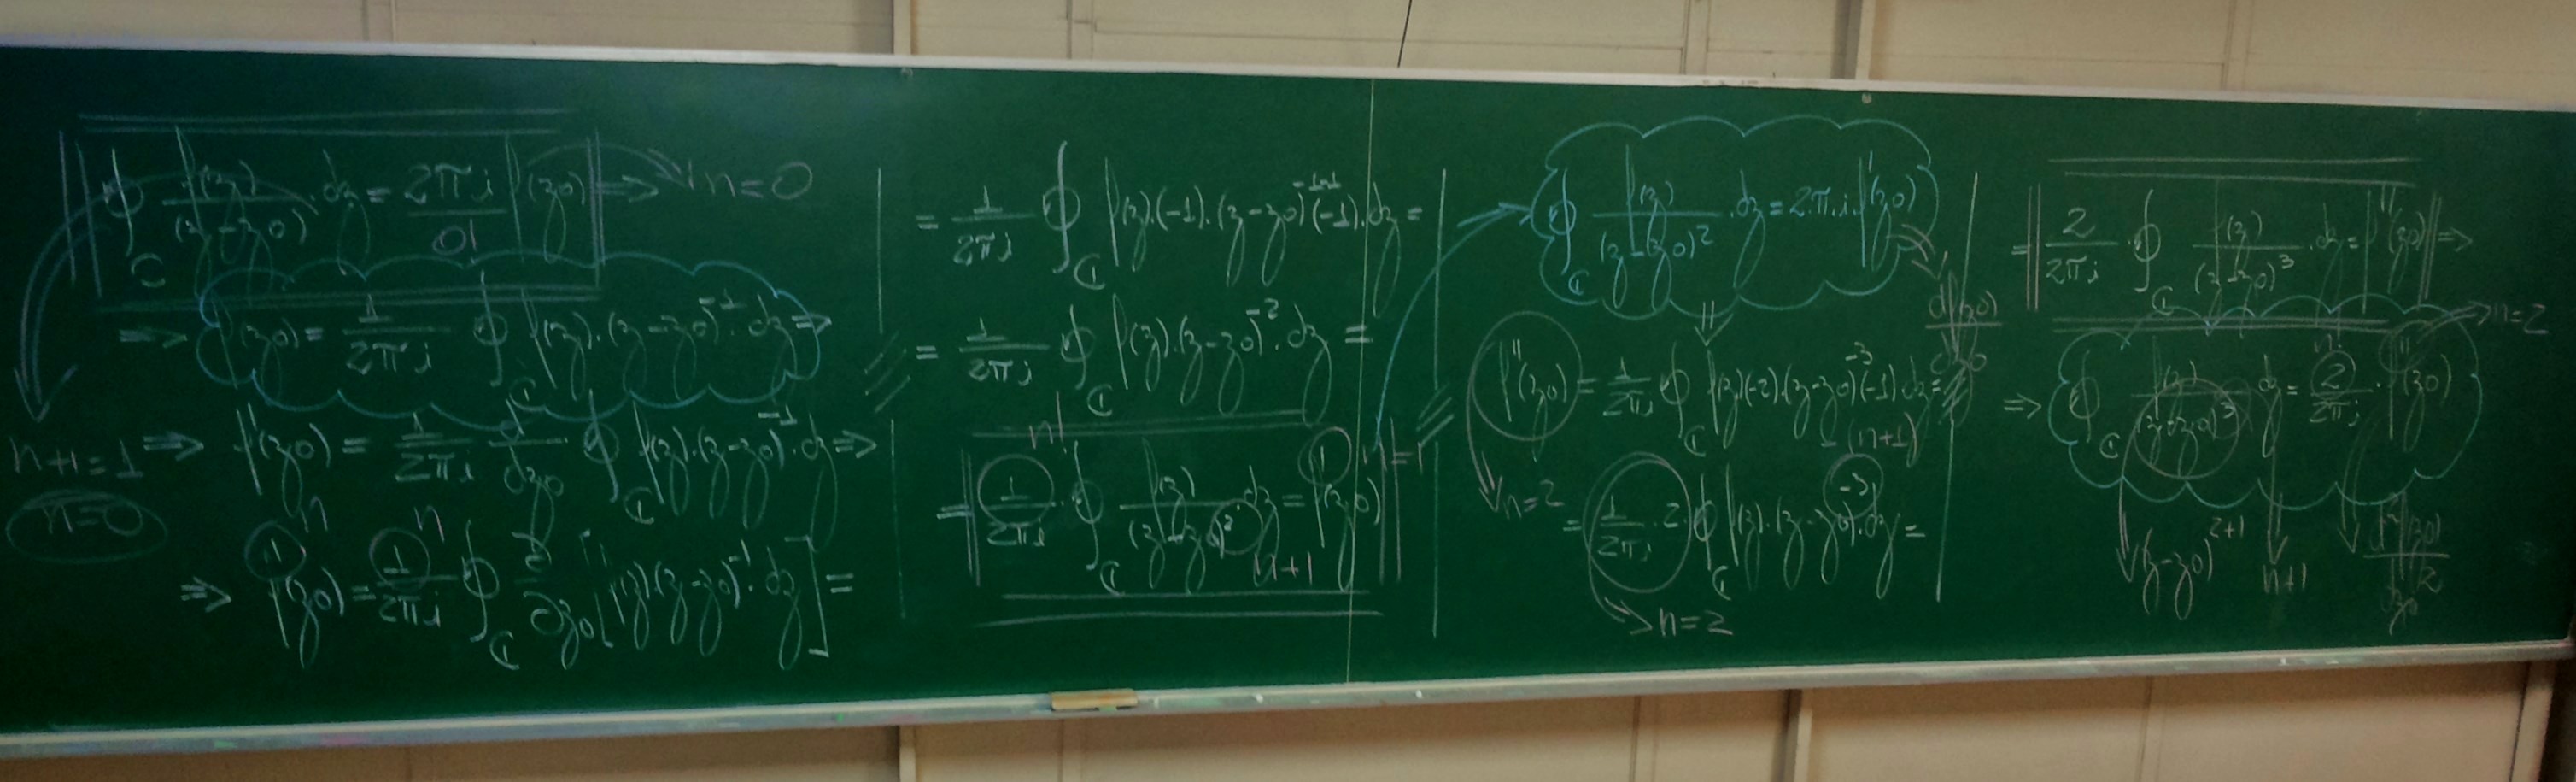 ∮_C f(z)/(z-z0) · dz = 2πi/0! f(z0) ⇒ n=0
⇒ f(z0) = 1/2πi ∮_C f(z)·(z-z0)^-1 · dz ⇒
n+1=1 ⇒ f'(z0) = 1/2πi d/dz0 ∮_C f(z)·(z-z0)^-1 · dz ⇒
n=0
n n
⇒ f'(z0) = 1/2πi ∮_C ∂/∂z0 [f(z)·(z-z0)^-1 · dz] =
= 1/2πi ∮_C f(z)·(-1)·(z-z0)^-1-1 (-1)·dz =
= 1/2πi ∮_C f(z)·(z-z0)^-2 · dz =
n! n=1
= 1/2πi · ∮_C f(z)/(z-z0)^2 dz = f'(z0)
n+1
∮_C f(z)/(z-z0)^2 · dz = 2·π·i·f'(z0)
df(z0)/dz0
f''(z0) = 1/2πi ∮_C f(z)(-2)·(z-z0)^-3 (-1)·dz =
n=2 -(n+1)
= 1/2πi · 2 · ∮_C f(z)·(z-z0)^-3 · dz =
n=2
= 2/2πi · ∮_C f(z)/(z-z0)^3 · dz = f''(z0) ⇒
n=2
n!
⇒ ∮_C f(z)/(z-z0)^3 dz = 2/2πi · f''(z0)
(z-z0)^2+1 n+1 d^2f(z0)/dz0^2